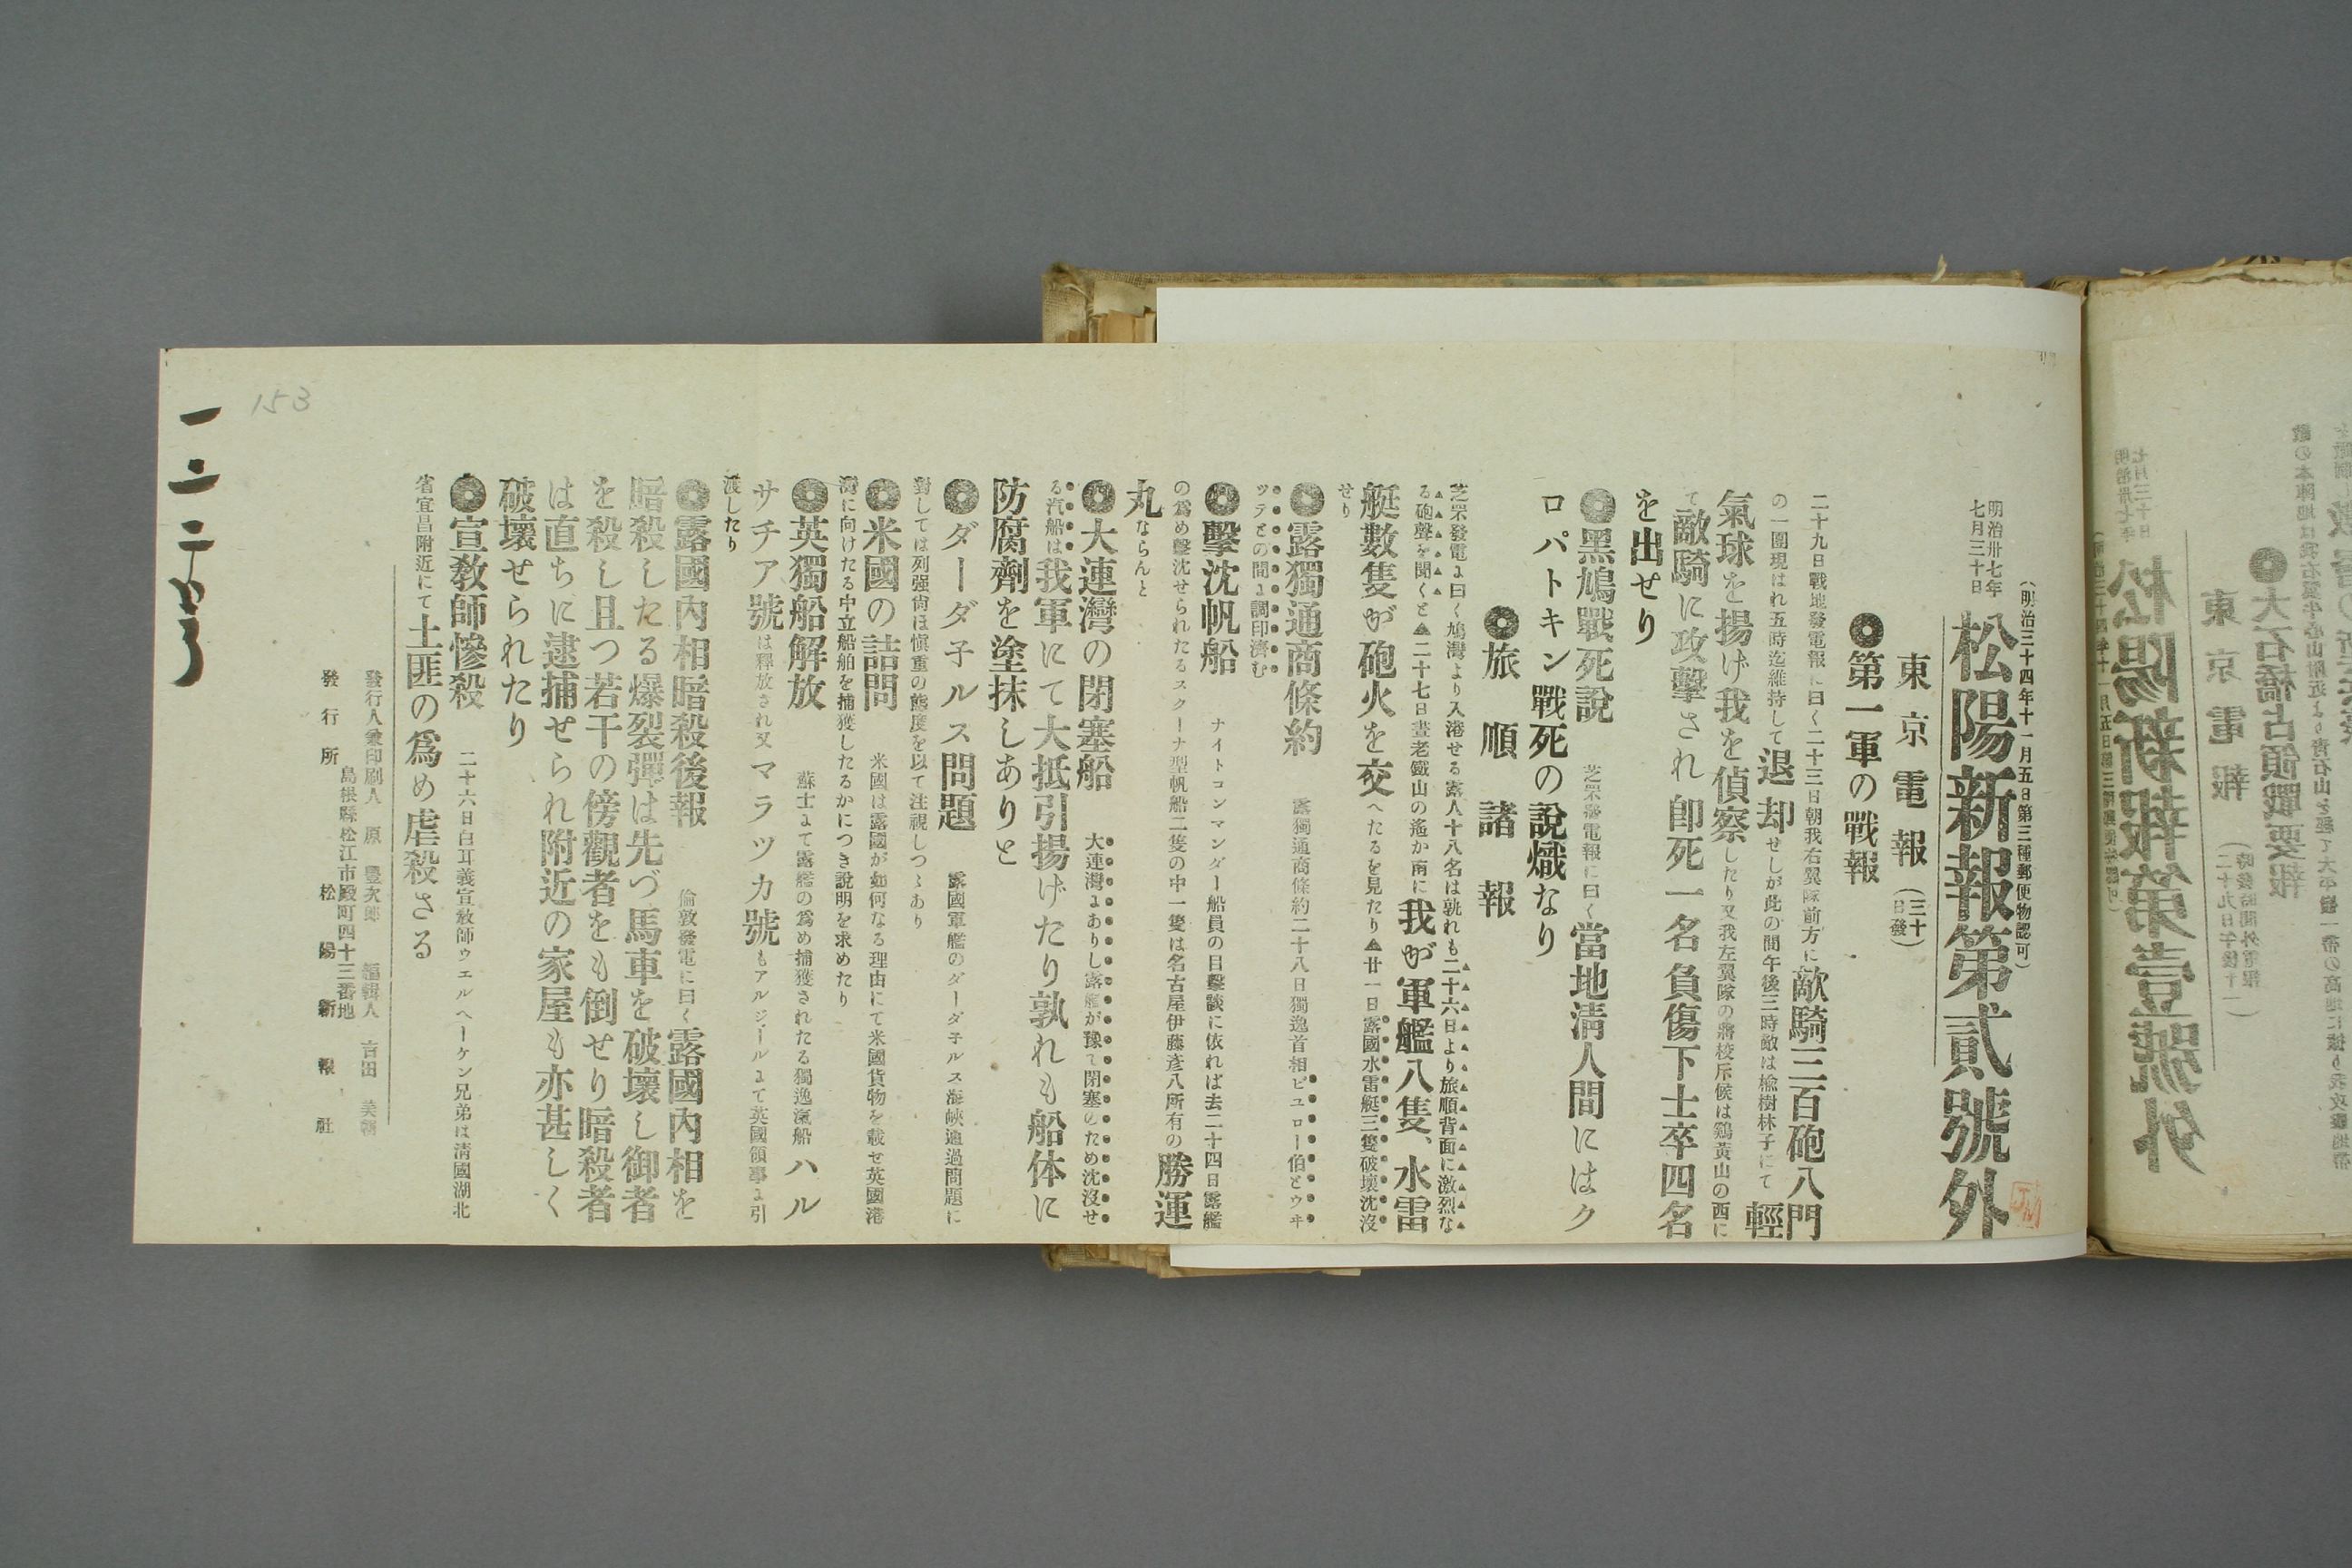 (明治三十四年十一月五日第三種郵便物認可)
明治卅七年
七月三十日
松陽新報第貳號外
東京電報(三十日發)
◉第一軍の戰報
二十九日戰地發電報に曰く二十三日朝我右翼隊前方に敵騎三百砲八門
の一團現はれ五時迄維持して退却せしが此の間午後三時敵は楡樹林子にて輕
氣球を揚げ我を偵察したり又我左翼隊の將校斥候は鷄黃山の西に
て敵騎に攻擊され卽死一名負傷下士卒四名
を出せり
◉黑鳩戰死說
芝罘發電報に曰く當地淸人間にはク
ロパトキン戰死の說熾なり
◉旅順諸報
芝罘發電に曰く鳩灣より入港せる露人十八名は孰れも二十六日より旅順背面に激烈な
る砲聲を聞くと▲二十七日晝老鐵山の遙か南に我が軍艦八隻、水雷
艇數隻が砲火を交へたるを見たり▲廿一日露國水雷艇三隻破壞沈沒
せり
◉露獨通商條約
露獨通商條約二十八日獨逸首相ビユロー伯とウヰ
ツテとの間に調印濟む
◉擊沈帆船
ナイトコンマンダー船員の目擊談に依れば去二十四日露艦
の爲め擊沈せられたるスクーナ型帆船二隻の中一隻は名古屋伊藤彥八所有の勝運
丸ならんと
◉大連灣の閉塞船
大連灣にありし露艦が豫て閉塞のため沈沒せ
る汽船は我軍にて大抵引揚げたり孰れも船体に
防腐劑を塗抹しありと
◉ダーダ子ルス問題
露國軍艦のダーダ子ルス海峽通過問題に
對しては列强尙ほ愼重の態度を以て注視しつゝあり
◉米國の詰問
米國は露國が如何なる理由にて米國貨物を載せ英國港
灣に向けたる中立船舶を捕獲したるかにつき說明を求めたり
◉英獨船解放
蘇士にて露艦の爲め捕獲されたる獨逸滊船ハル
サチア號は釋放され又マラツカ號もアルジールにて英國領事に引
渡したり
◉露國內相暗殺後報
倫敦發電に曰く露國內相を
暗殺したる爆裂彈は先づ馬車を破壞し御者
を殺し且つ若干の傍觀者をも倒せり暗殺者
は直ちに逮捕せられ附近の家屋も亦甚しく
破壞せられたり
◉宣敎師慘殺
二十六日白耳義宣敎師ウエルヘーケン兄弟は淸國湖北
省宜昌附近にて土匪の爲め虐殺さる
發行人兼印刷人 原 豐次郞 編輯人 吉田 美朝
島根縣松江市殿町四十三番地
發行所 松陽新報社
153
七月三十日
松陽新報第壹號外
東京電報
◉大石橋占領戰要報